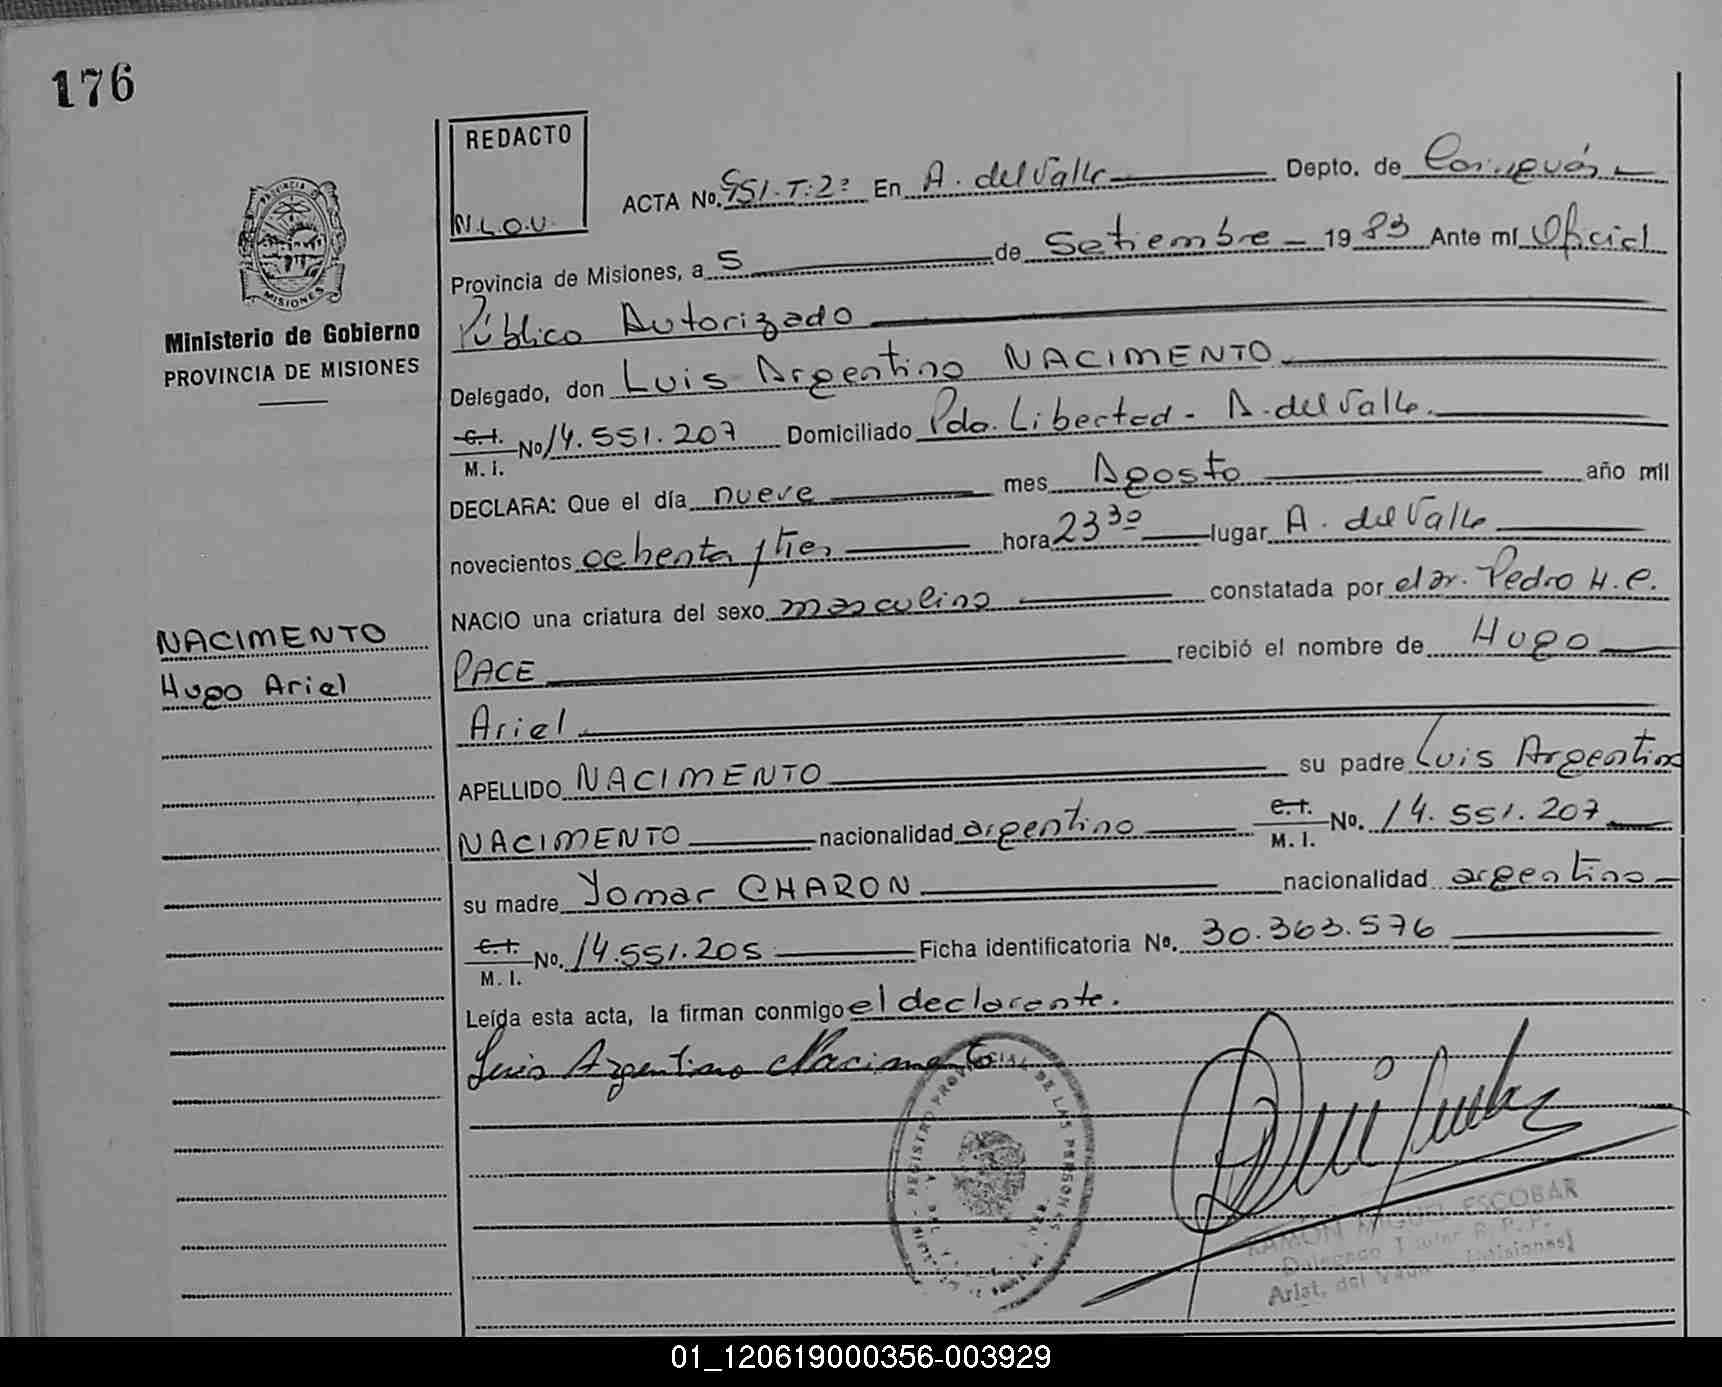 176
REDACTO
N.L.O.U.
ACTA No. 551.T:2º En A. del Valle Depto. de Cainguás
Provincia de Misiones, a 5 de Setiembre 1983 Ante mí Oficial
Público Autorizado
Delegado, don Luis Argentino NACIMENTO
C.I. M. I. No 14.551.207 Domiciliado Pdo. Libertad - A. del Valle.
DECLARA: Que el día nueve mes Agosto año mil
novecientos ochenta y tres hora 23 30 lugar A. del Valle
NACIO una criatura del sexo masculino constatada por el Dr. Pedro H. C.
PACE recibió el nombre de Hugo
Ariel
APELLIDO NACIMENTO su padre Luis Argentino
NACIMENTO nacionalidad argentino C.I. M. I. No. 14.551.207
su madre Yomar CHARON nacionalidad argentina
C.I. M. I. No. 14.551.205 Ficha identificatoria Nº. 30.363.576
Leída esta acta, la firman conmigo el declarante.
Luis Argentino Nacimento
PROVINCIA DE
MISIONES
Ministerio de Gobierno
PROVINCIA DE MISIONES
NACIMENTO
Hugo Ariel
REGISTRO PROVINCIAL DE LAS PERSONAS
RAMON MIGUEL ESCOBAR
Delegado Titular R. P. P.
Arist. del Valle - (Misiones)
01_120619000356-003929